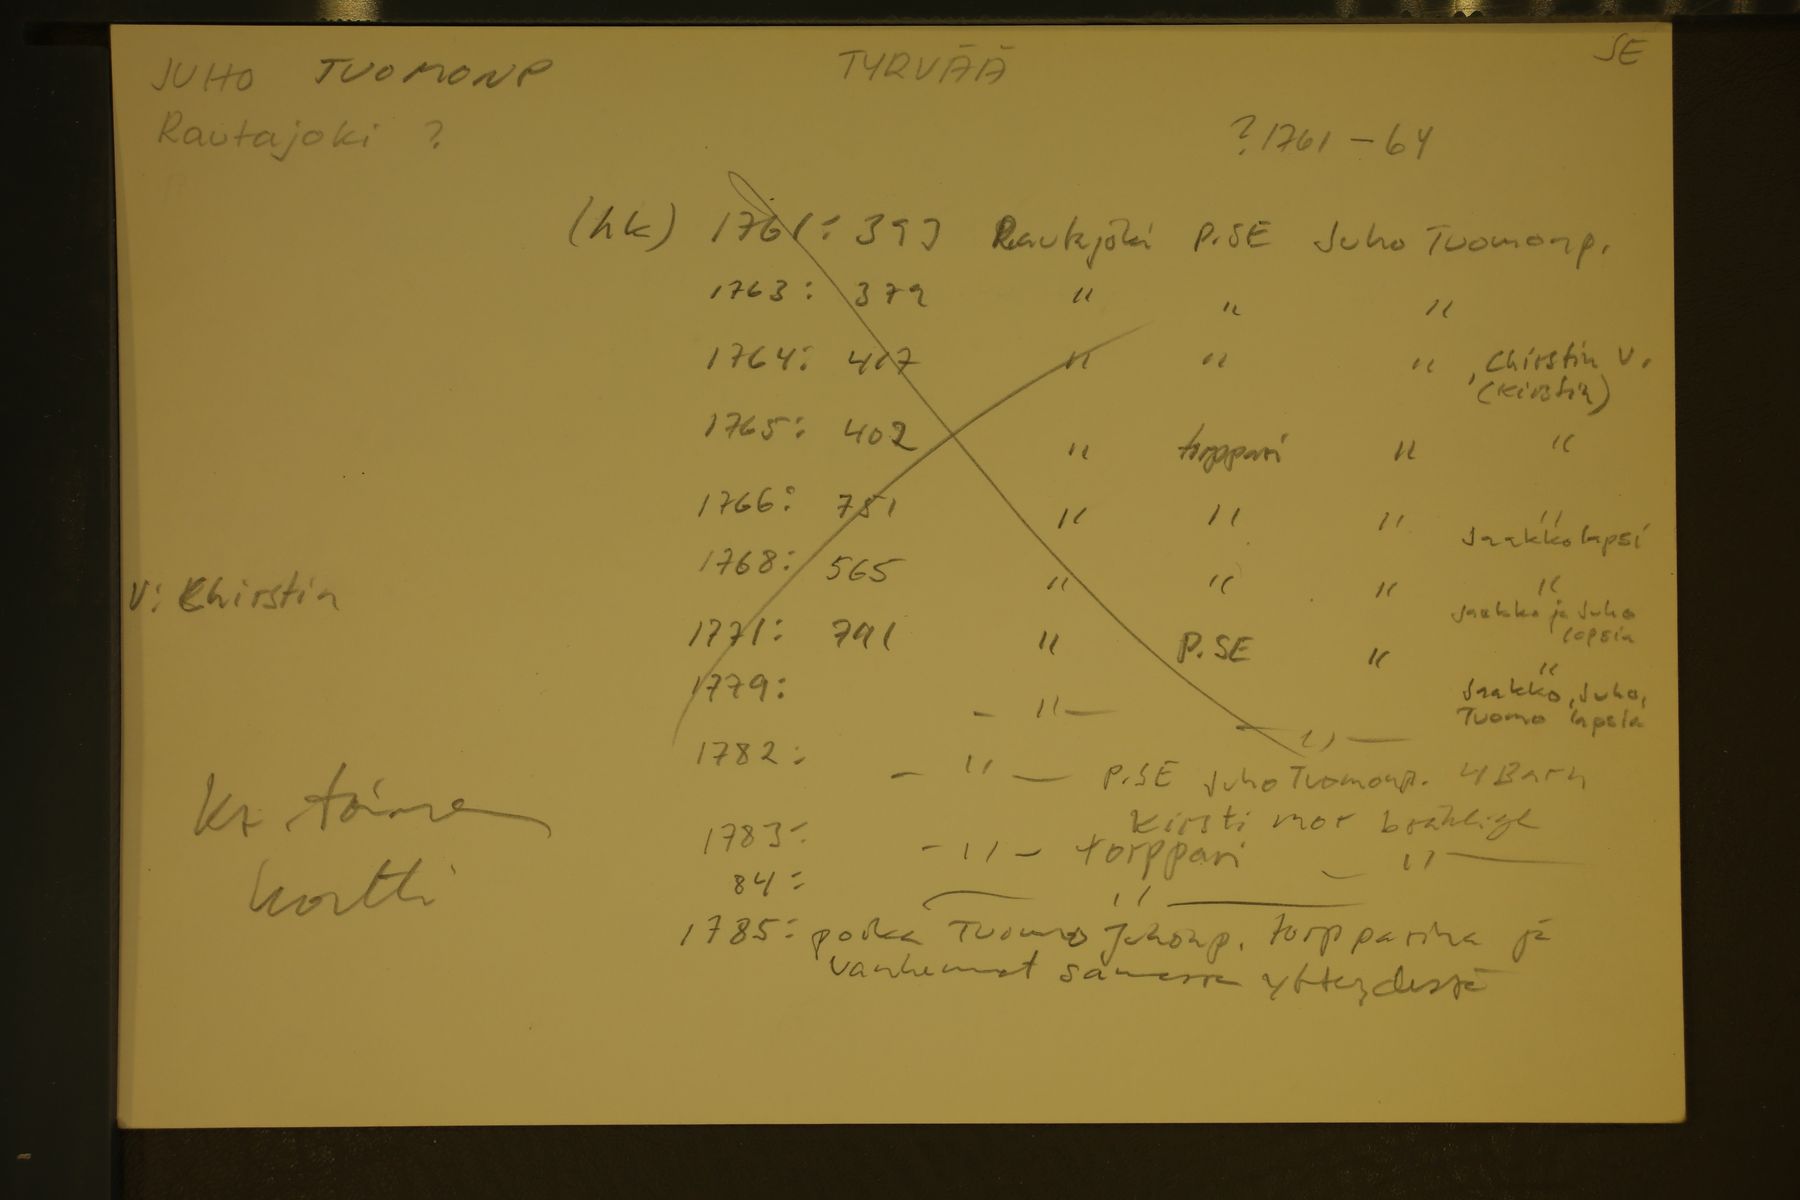 JUHO TUOMONP TYRVÄÄ SE
Rautajoki ? ? 1761 - 64
(hk) 1761: 393 Rautajoki P.SE Juho Tuomonp.
1763: 379 " " "
1764: 417 " " " , Chirstin V.
(Kirstin)
1765: 402 " torppari " "
1766: 751 " " " "
Jaakko lapsi
1768: 565 " " " "
Jaakko ja Juho
lapsia
V: Chirstin
1771: 791 " P.SE " "
Jaakko, Juho,
Tuomo lapsia
1779: - " - - " -
1782: - " - P.SE Juho Tuomonp. 4 Barn
Kirsti mor bräklig
1783: - " - torppari - " -
84: - " -
1785: poika Tuomo Juhonp. torpparina ja
vanhemmat samassa yhteydessä
Kz toinen
kortti